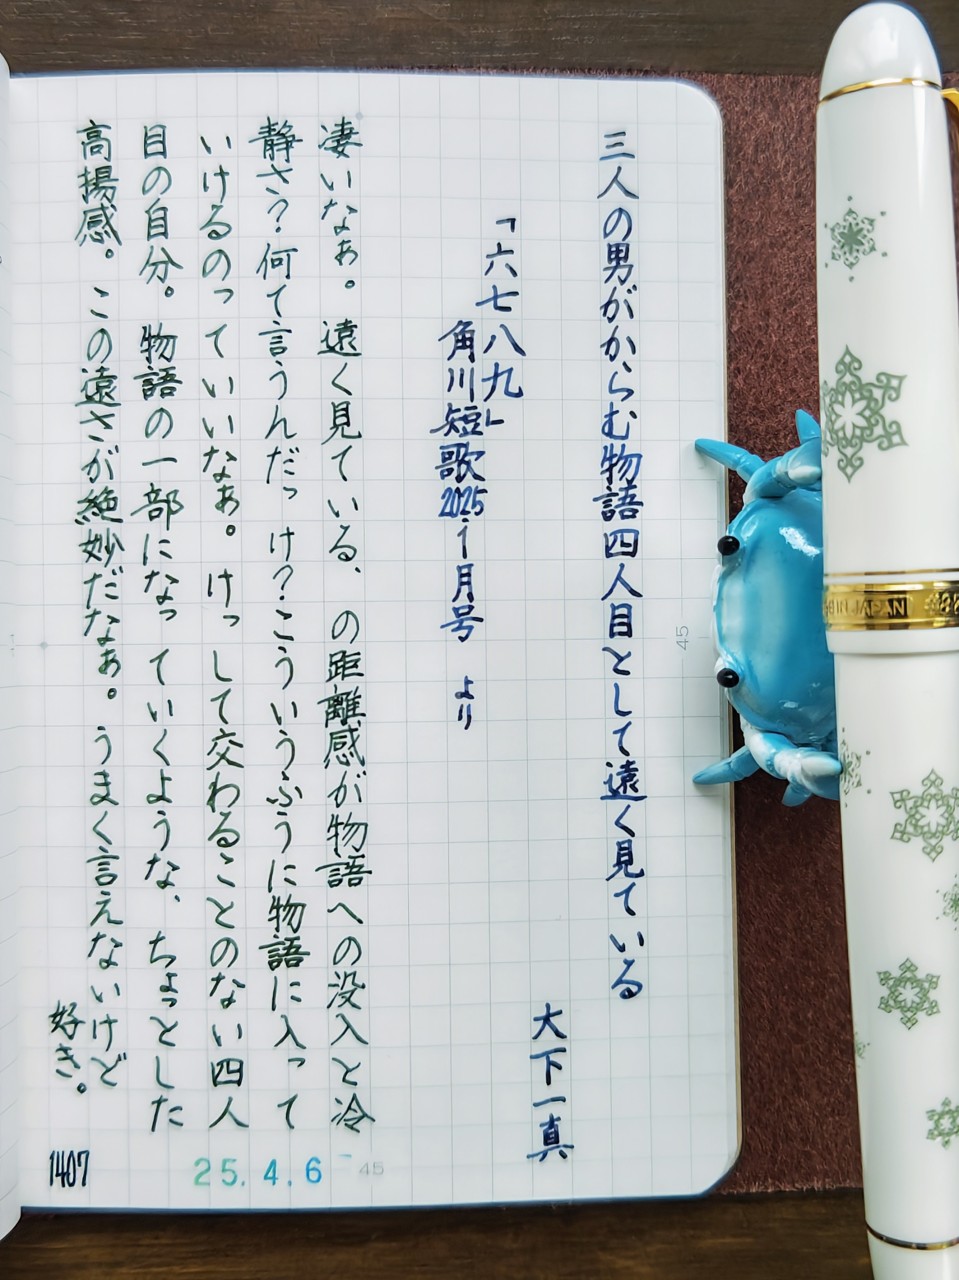 三人の男がからむ物語四人目として遠く見ている
大下一真
「六七八九」
角川短歌2025.1月号 より
凄いなぁ。遠く見ている、の距離感が物語への没入と冷
静さ?何て言うんだっけ?こういうふうに物語に入って
いけるのっていいなぁ。けっして交わることのない四人
目の自分。物語の一部になっていくような、ちょっとした
高揚感。この遠さが絶妙だなぁ。うまく言えないけど
好き。
1407
25.4.6
45
45
IN JAPAN